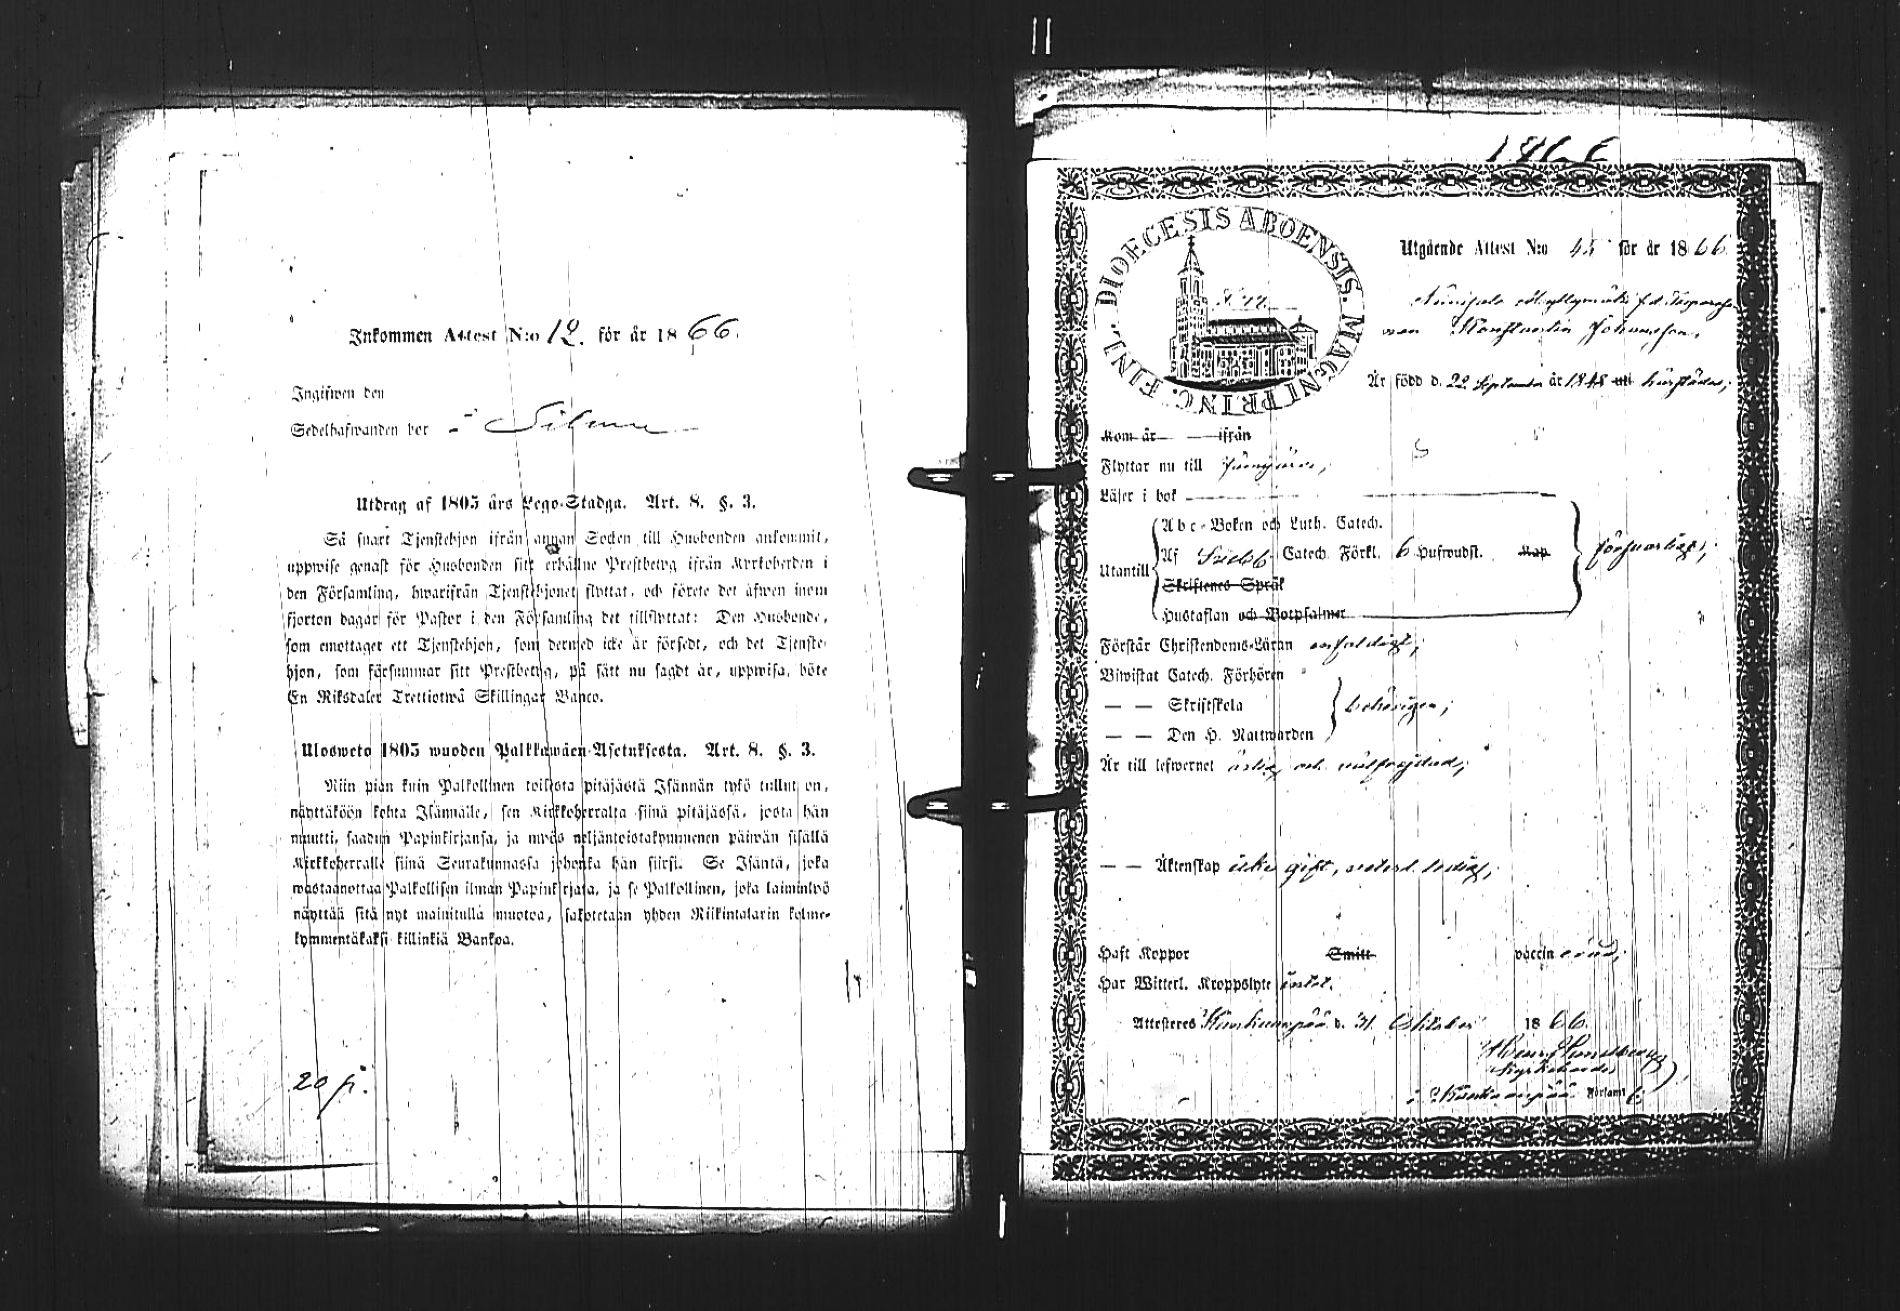 Inkommen Attest N:o 12. för år 1866.
Ingifwen den
Sedelhafwanden bor i Silmu
Utdrag af 1805 års Lego-Stadga. Art. 8. §. 3.
Så snart Tjenstehjon ifrån annan Socken till Husbonden ankommit,
uppwise genast för Husbonden sitt erhållne Prestbetyg ifrån Kyrkoherden i
den Församling, hwarifrån Tjenstehjonet flyttat, och förete det äfwen inom
fjorton dagar för Pastor i den Församling det tillflyttat: Den Husbonde,
som emottager ett Tjenstehjon, som dermed icke är försedt, och det Tjenste-
hjon, som försummar sitt Prestbetyg, på sätt nu sagdt är, uppwisa, böte
En Riksdaler Trettiotwå Skillingar Banco.
Ulosweto 1805 wuoden Palkkawäen-Asetuksesta. Art. 8. §. 3.
Niin pian kuin Palkollinen toisesta pitäjästä Isännän tykö tullut on,
näyttäköön kohta Isännälle, sen Kirkkoherralta siinä pitäjässä, josta hän
muutti, saadun Papinkirjansa, ja myös neljäntoistakymmenen päiwän sisällä
Kirkkoherralle siinä Seurakunnassa johonka hän siirsi. Se Isäntä, joka
wastaanottaa Palkollisen ilman Papinkirjata, ja se Palkollinen, joka laiminlyö
näyttää sitä nyt mainitulla muotoa, sakotetaan yhden Riikintalarin kolme-
kymmentäkaksi killinkiä Bankoa.
20 p.
1866
DIOECESIS ABOENSIS. MAGNI PRINC. FINL.
Utgående Attest N:o 45 för år 1866
Myllymäki f.d.
Konstantin Johansson,
Är född d. 22 September år 1848 uti härstädes;
Kom år ifrån
Flyttar nu till Jämijärvi,
Läser i bok
Abc-Boken och Luth. Catech.
Utantill Af Svebb Catech. Förkl. 6 Hufwudst. Kap förswarligt;
Skriftenes Språk
Hustaflan och Botpsalmer
Förstår Christendoms-Läran enfaldigt;
Biwistat Catech. Förhören
— — Skriftskola behörigen;
— — Den H. Nattwarden
Är till lefwernet ärlig och välfrejdad;
— — Äktenskap icke gift, ledig;
Haft Koppor Smitt vaccinerad;
Har Witterl. Kroppslyte intet.
Attesteras Kankaanpää d. 31 Oktober 1866.
Kyrkoherde
i Kankaanpää Församl.